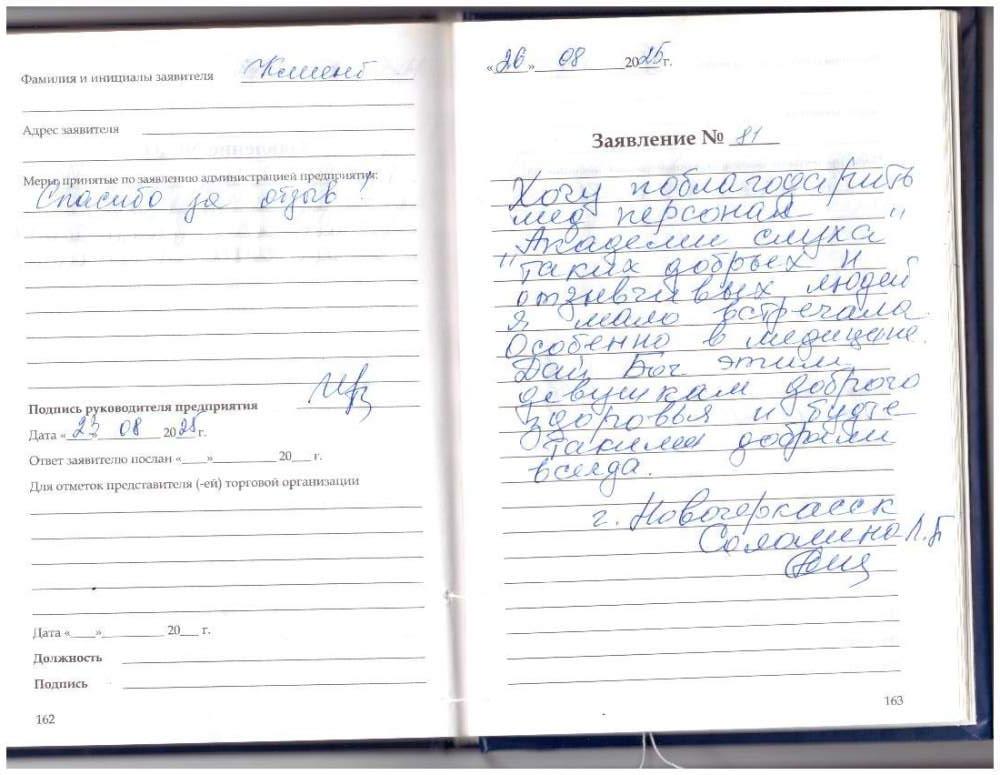 Фамилия и инициалы заявителя Клиент
Адрес заявителя
Меры, принятые по заявлению администрацией предприятия:
Спасибо за отзыв!
Подпись руководителя предприятия
Дата «23» 08 2025 г.
Ответ заявителю послан «___»__________ 20___ г.
Для отметок представителя (-ей) торговой организации
Дата «___»__________ 20___ г.
Должность
Подпись
162
«26» 08 2025 г.
Заявление № 81
Хочу поблагодарить
мед персонал "
Академии слуха
" таких добрых и
отзывчивых людей
я мало встречала.
Особенно в медицине.
Дай Бог этим
девушкам доброго
здоровья и будте
такими добрыми
всегда.
г. Новочеркасск
Соломина Л.П
163